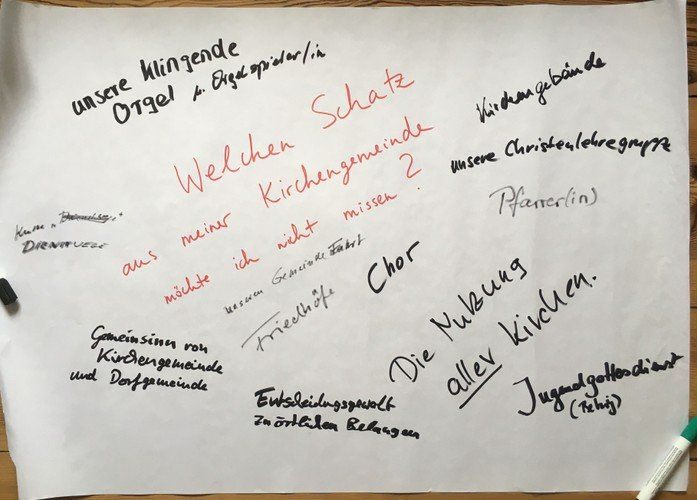 unsere klingende
Orgel u. Orgelspieler/in
Welchen Schatz
aus meiner Kirchengemeinde
möchte ich nicht missen?
Kirchengebäude
unsere Christenlehregruppe
Pfarrer(in)
Kurze
DIENSTWEGE
unseren Gemeinde
Friedhöfe
Chor
Die Nutzung
aller Kirchen.
Gemeinsinn von
Kirchengemeinde
und Dorfgemeinde
Entscheidungsgewalt
zu örtlichen Belangen
Jugendgottesdienst